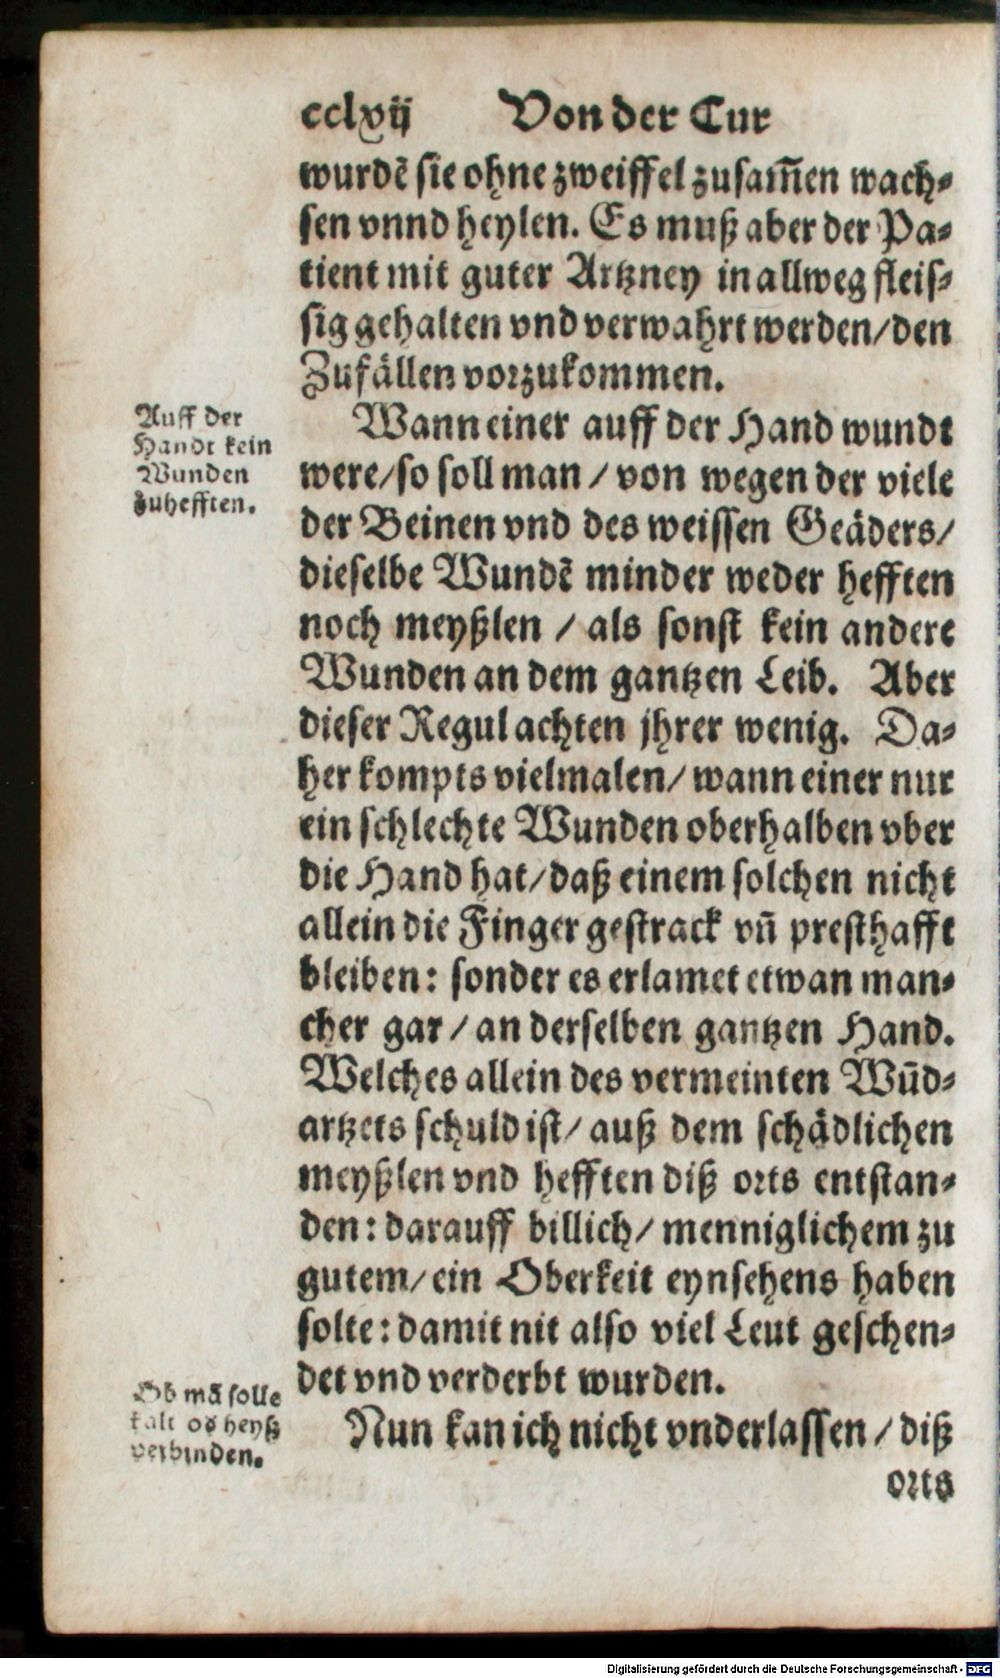 cclxvij Von der Cur
wurdẽ sie ohne zweiffel zusam̃en wach⸗
sen vnnd heylen. Es muß aber der Pa⸗
tient mit guter Artzney in allweg fleis⸗
sig gehalten vnd verwahrt werden/den
Zufällen vorzukommen.
Auff der
Handt kein
Wunden
zuhefften.
Wann einer auff der Hand wundt
were/so soll man / von wegen der viele
der Beinen vnd des weissen Geäders/
dieselbe Wundẽ minder weder hefften
noch meyßlen / als sonst kein andere
Wunden an dem gantzen Leib. Aber
dieser Regul achten jhrer wenig. Da⸗
her kompts vielmalen/ wann einer nur
ein schlechte Wunden oberhalben vber
die Hand hat/daß einem solchen nicht
allein die Finger gestrack vñ presthafft
bleiben: sonder es erlamet etwan man⸗
cher gar / an derselben gantzen Hand.
Welches allein des vermeinten Wũd⸗
artzets schuld ist/ auß dem schädlichen
meyßlen vnd hefften diß orts entstan⸗
den: darauff billich/ menniglichem zu
gutem/ ein Oberkeit eynsehens haben
solte: damit nit also viel Leut geschen⸗
det vnd verderbt wurden.
Ob mã solle
kalt od heyß
verbinden.
Nun kan ich nicht vnderlassen / diß
orts
Digitalisierung gefördert durch die Deutsche Forschungsgemeinschaft - DFG